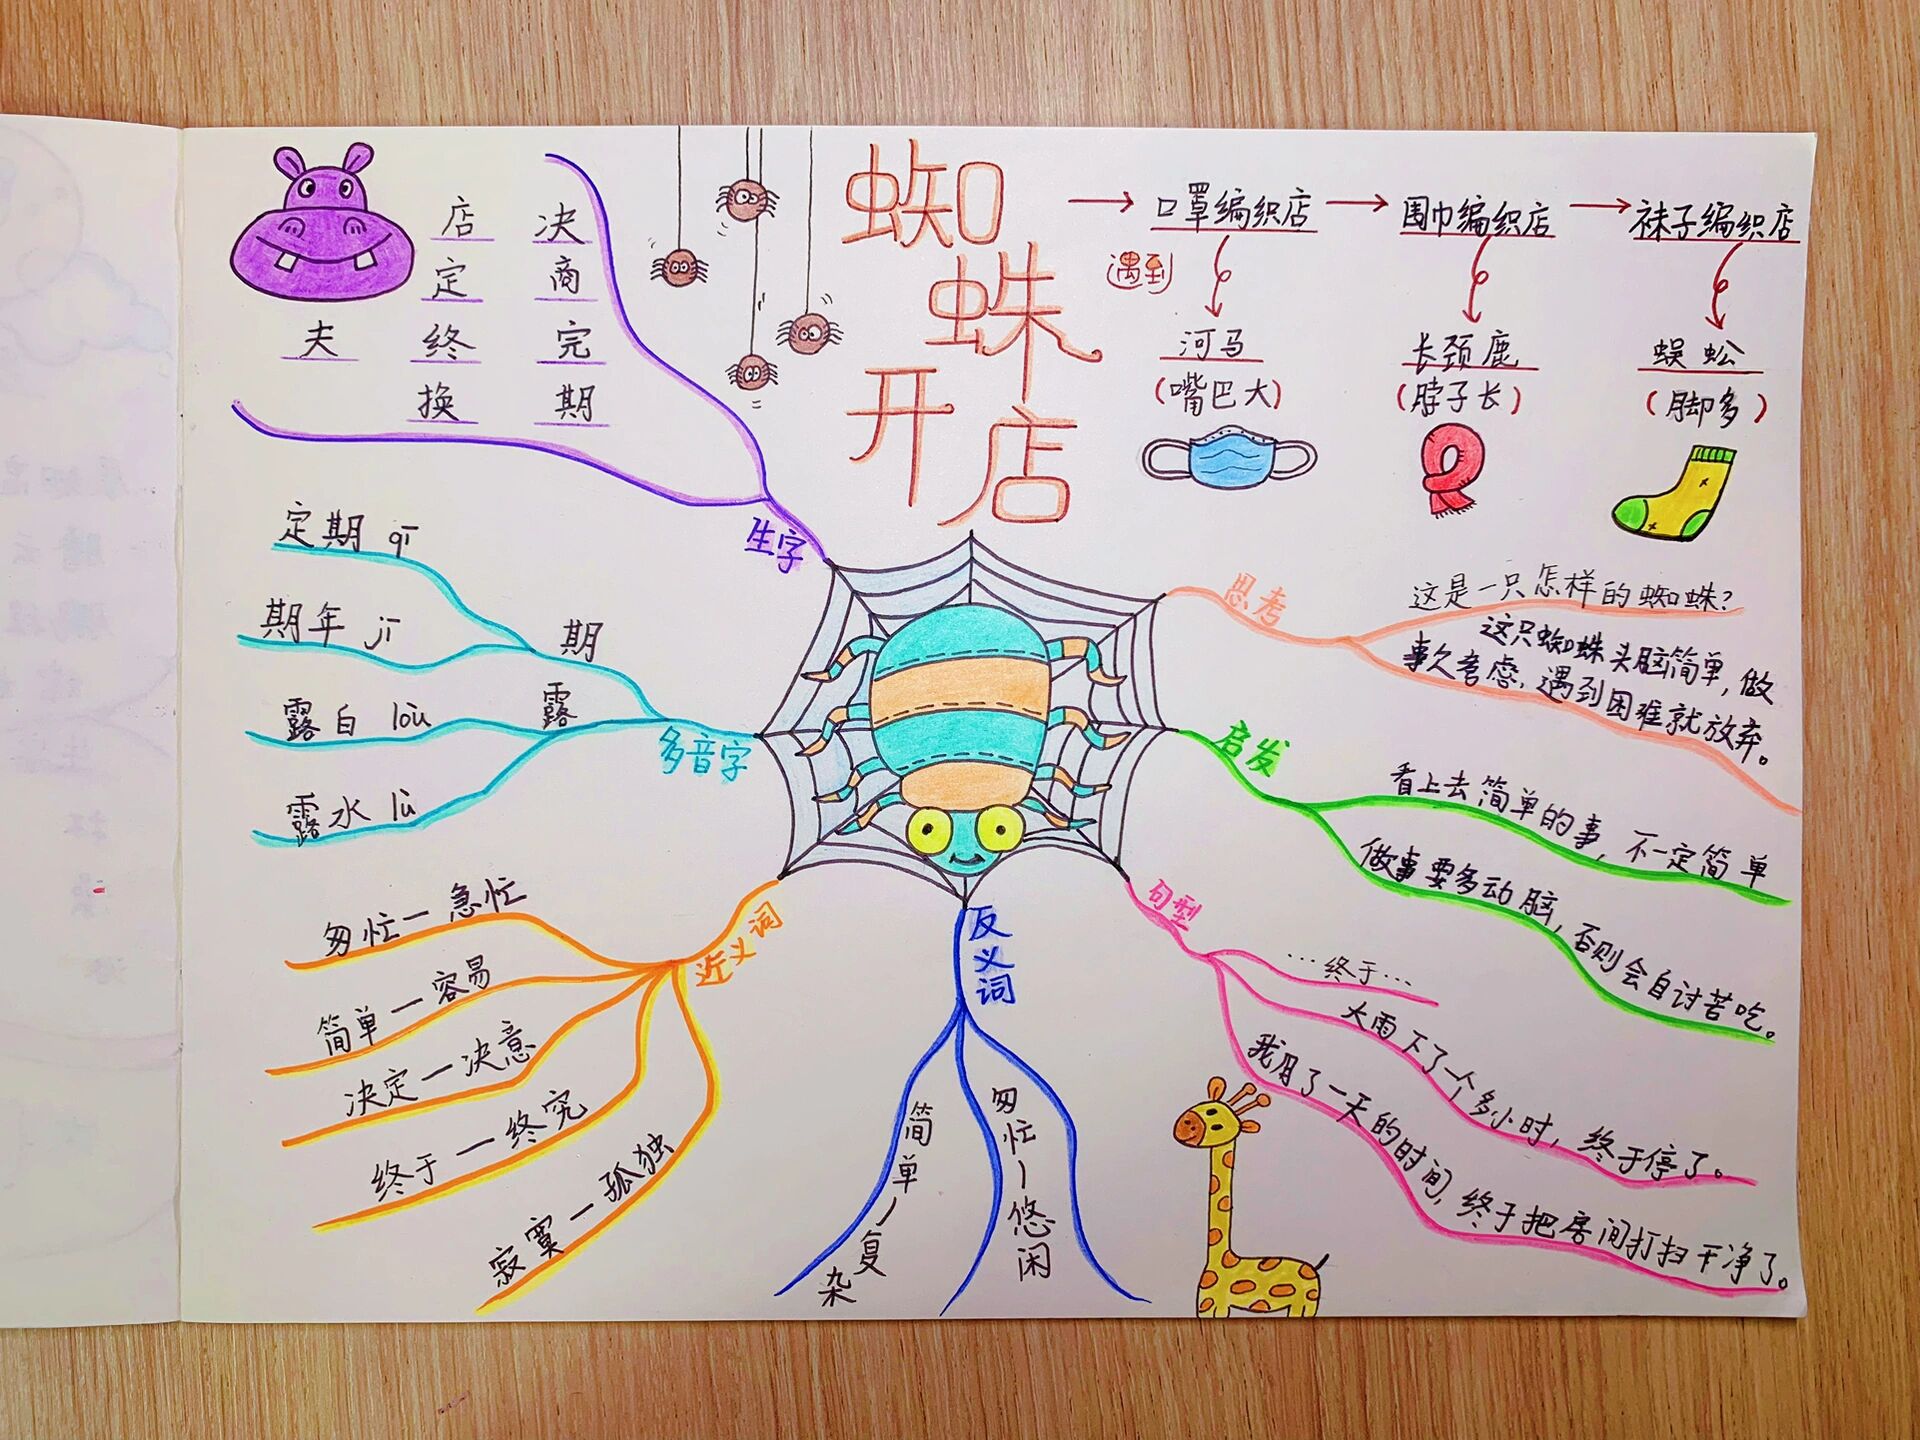 蜘蛛开店
店 决
定 商
夫 终 完
换 期
生字
口罩编织店
围巾编织店
袜子编织店
遇到
河马
长颈鹿
蜈蚣
(嘴巴大)
(脖子长)
(脚多)
定期 qī
期年 jī
期
露白 lòu
露
露水 lù
多音字
思考
这是一只怎样的蜘蛛?
这只蜘蛛头脑简单,做
事欠考虑,遇到困难就放弃。
启发
看上去简单的事,不一定简单
做事要多动脑,否则会自讨苦吃。
近义词
匆忙—急忙
简单—容易
决定—决意
终于—终究
寂寞—孤独
反义词
简单—复杂
匆忙—悠闲
句型
…终于…
大雨下了一个多小时,终于停了。
我用了一天的时间,终于把房间打扫干净了。